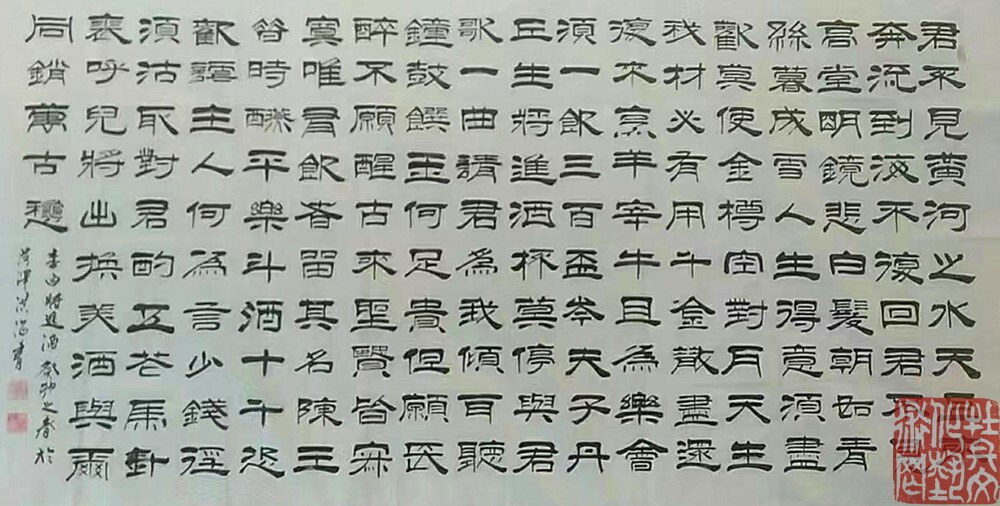 君不見黃河之水天
奔流到海不復回君
高堂明鏡悲白髮朝如青
絲暮成雪人生得意須盡
歡莫使金樽空對月天生
我材必有用千金散盡還
復來烹羊宰牛且為樂會
須一飲三百盃岑夫子丹
丘生將進酒杯莫停與君
歌一曲請君為我傾耳聽
鐘鼓饌玉何足貴但願長
醉不願醒古來聖賢皆寂
寞唯君飲者留其名陳王
昔時醼平樂斗酒十千恣
歡謔主人何為言少錢徑
須沽取對君酌五花馬針
裘呼兒將出換美酒與爾
同銷萬古愁
李白將進酒癸卯之春於
菏澤洪海書